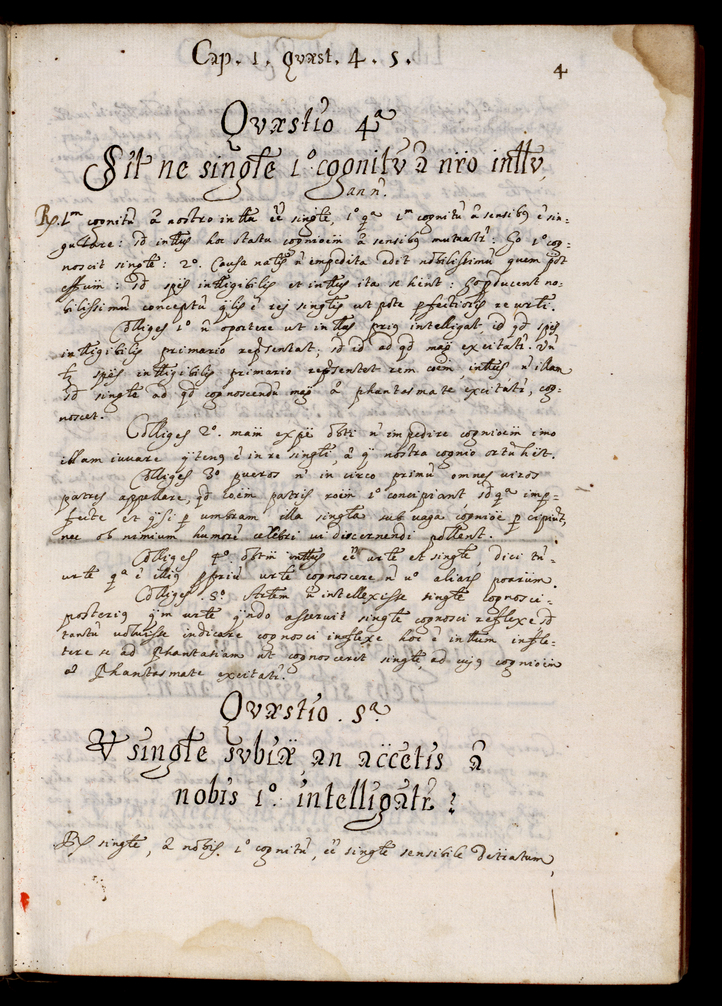 Cap. 1. quæst. 4. 5.
4
Quæstio 4ª
Sit ne singłe 1º cognitũ â nrõ intłtu,
an nˉ.
R. 1m cognitũ â nostro intłtu ẽẽ singłe, 1º qª 1m cognitũ â sensibꝰ ẽ sin-
gulare: sd intłtus hoc statu cognioẽm â sensibꝰ mutuatˉ: go 1º cog-
noscit singłe: 2º. Causa natłis nˉ impedita edit nobilissimũ quem pot̃
effum: sd spẽs intlligibilis et intłtus ita se hent: go producent no-
bilissimũ conceptũ qłis ẽ rej singłis utpote pfectioris re urłi.
Colliges 1º nˉ oportere ut intłtus priꝰ intelligat id qd spẽs
intlligibilis primario repsentat, sd id ad qd magˉ excitatˉ. Un
lꝫ spẽs intlligibilis primario repsentet rem coẽm intłtus nˉ illam
sd singłe ad qd cognoscendũ magˉ â phantasmate excitatˉ, cog-
noscet.
Colliges 2º. maãm nˉ impedire cognioẽm imo
illam iuvare qˉtenꝰ ẽ in re singłi, â qˉ nostra cognio ortũ hẽt.
Colliges 3º pueros nˉ in circo primũ omnes viros
patres appellare, qd coẽm patris roẽm 1º concipiant sd qª imp-
fecte et qˉsi p umbram illa singłia sub vaga cognioẽ pcipiũt,
nec ob nimium humorẽ celebri vi discernendi pollent.
Colliges 4º obtm̃ intłtus ẽẽ urłe et singłe, dici tñ
urłe qª ẽ illiꝰ ppriũ urłe cognoscere nˉ vº aliarˉ poarũm.
Colliges 5º Artẽm nˉ intellexisse singłe cognosci
posteriꝰ qˉm urłe qˉndo asseruit singłe cognosci reflexe sd
tantũ voluisse indicare cognosci inflexe hoc ẽ intłtum infle-
tere se ad Phantasiam ut cognosceret singłe ad cujꝰ cognioẽm
â Phantasmate excitatˉ.
Quæstio 5ª
V singłe subiæ, an accetis â
nobis 1º intelligatˉ?
R. singłe, â nobis 1º cognitũ, ẽẽ singłe sensibile